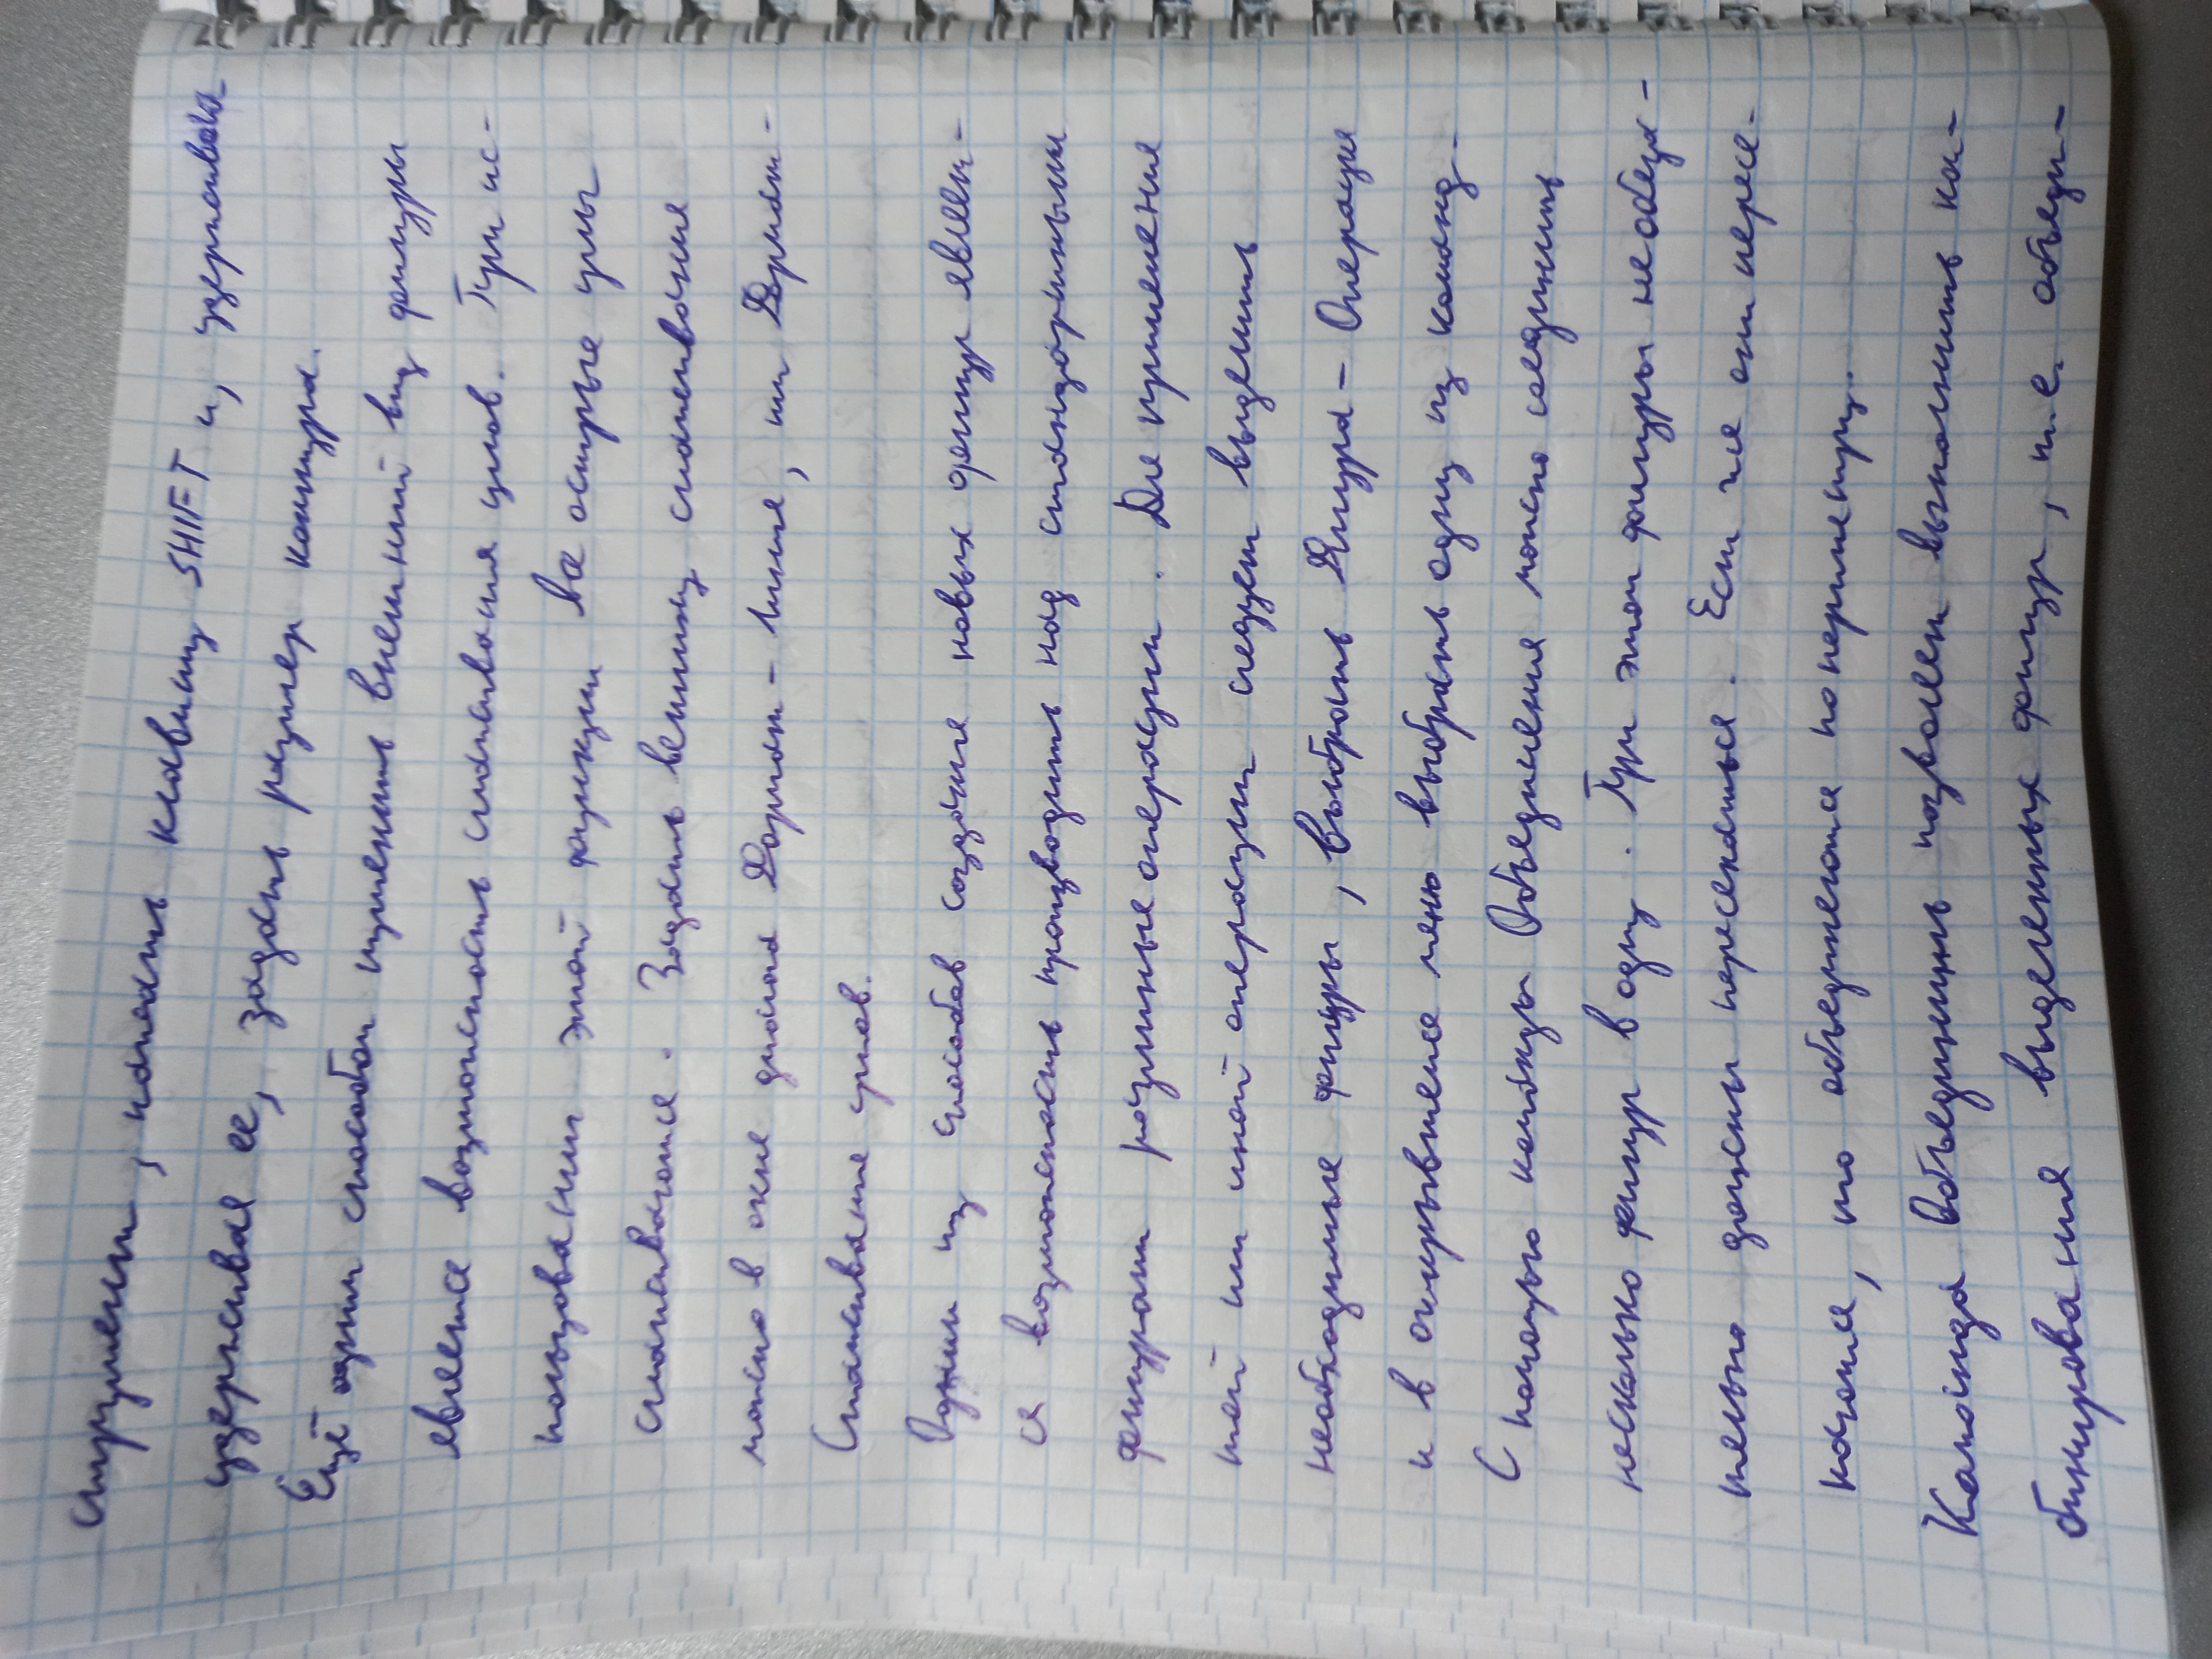 струмент, нажать клавишу SHIFT и, удержива-
удерживая ее, задать размер контура.
Ещё одним способом изменить внешний вид фигуры
является возможность сглаживания углов. При ис-
пользовании этой функции все острые углы
сглаживаются. Задать величину сглаживания
можно в окне диалога Формат - Линия, или Формат -
Сглаживание углов.
Одним из способов создания новых фигур являет-
ся возможность производить над стандартными
фигурами различные операции. Для применения
той или иной операции следует выделить
необходимые фигуры, выбрать Фигура - Операции
и в открывшемся меню выбрать одну из команд.
С помощью команды Объединения можно соединить
несколько фигур в одну. При этом фигуры не обяза-
тельно должны пересекаться. Если же они пересе-
каются, то объединяются по периметру.
Команда Объединить позволяет выполнить ком-
бинирования выделенных фигур, т.е. объеди-